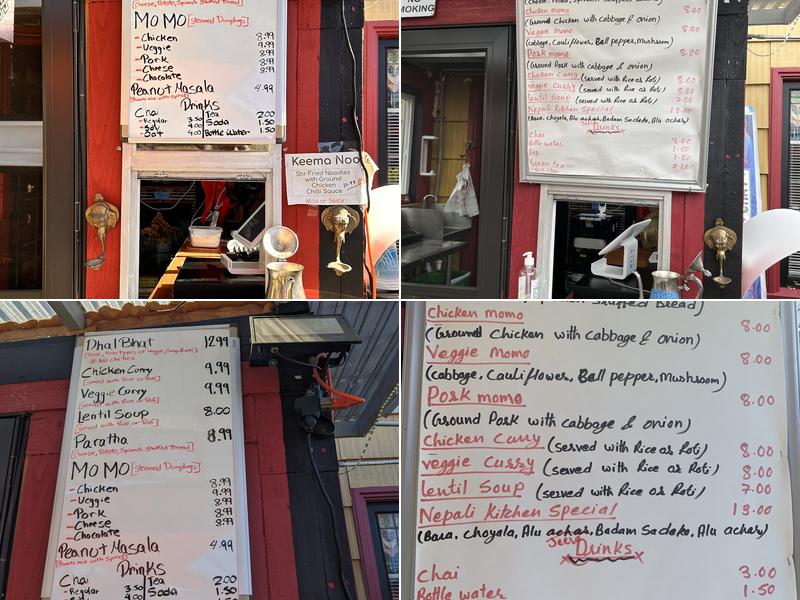 MOMO [steamed Dumplings]
- Chicken 8.99
- Veggie 9.99
- Pork 8.99
- Cheese 8.99
- Chocolate
Peanut Masala 4.99
Drinks
Chai Tea 2.00
- Regular 3.50 Soda 1.50
- Soy 4.00 Bottle Water 1.50
- Oat
Keema Noo
Stir Fried Noodles
with Ground
Chicken
Chilli Sauce
Mild or Spicy
NO
SMOKING
Chicken momo 8.00
(Ground Chicken with cabbage & onion)
Veggie momo 8.00
(cabbage, Cauliflower, Bell pepper, Mushroom)
Pork momo 8.00
(Ground Pork with cabbage & onion)
Chicken Curry (served with Rice or Roti) 8.00
veggie Curry (served with Rice or Roti) 8.00
lentil Soup (served with Rice or Roti) 7.00
Nepali Kitchen Special 13.00
(Bara, choyala, Alu achar, Badam Sadeko, Alu achar)
Drinks
Chai 3.00
Bottle water 1.50
Pop 1.50
Green tea
Dhal Bhat 12.99
Chicken Curry 9.99
[served with Rice or Roti]
Veggie Curry 9.99
[served with Rice or Roti]
Lentil Soup 8.00
[served with Rice or Roti]
Paratha 8.99
[cheese, Potato, Spinach Stuffed Bread]
MOMO [steamed Dumplings]
- Chicken 8.99
- Veggie 9.99
- Pork 8.99
- Cheese 8.99
- Chocolate
Peanut Masala 4.99
[Peanuts mix with Spices]
Drinks
Chai Tea 2.00
- Regular 3.50 Soda 1.50
Stuffed Bread)
Chicken momo 8.00
(Ground Chicken with cabbage & onion)
Veggie momo 8.00
(cabbage, Cauliflower, Bell pepper, Mushroom)
Pork momo 8.00
(Ground Pork with cabbage & onion)
Chicken Curry (served with Rice or Roti) 8.00
veggie Curry (served with Rice or Roti) 8.00
lentil Soup (served with Rice or Roti) 7.00
Nepali Kitchen Special 13.00
(Bara, choyala, Alu achar, Badam Sadeko, Alu achar)
Drinks
Chai 3.00
Bottle water 1.50